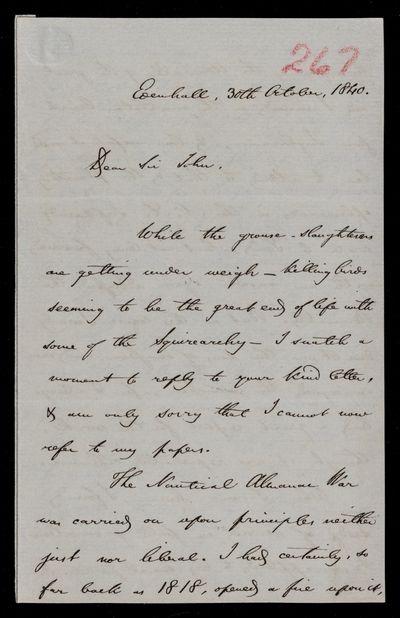 267
Edenhall, 30th October, 1840.
Dear Sir John,
While the grouse-slaughterers
are getting under weigh — killing birds
seeming to be the great end of life with
some of the Squirearchy — I snatch a
moment to reply to your kind letter,
& am only sorry that I cannot now
refer to my papers.
The Nautical Almanac War
was carried on upon principles neither
just nor liberal. I had certainly, so
far back as 1818, opened a fire upon it,